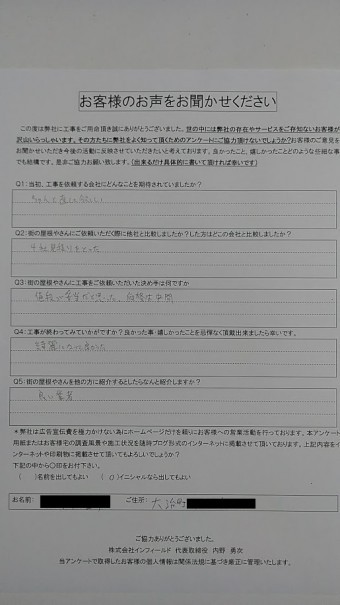 お客様のお声をお聞かせください
この度は弊社に工事をご用命頂き誠にありがとうございました。世の中には弊社の存在やサービスをご存知ないお客様が
沢山いらっしゃいます。その方たちに弊社をよく知って頂くためのアンケートにご協力頂けないでしょうか?お客様のご意見を
お聞かせいただき今後の活動に反映させていただきたいと考えております。良かったこと、嬉しかったことどのような些細な事
でも結構です。是非ご協力お願い致します。(出来るだけ具体的に書いて頂ければ幸いです)
Q1:当初、工事を依頼する会社にどんなことを期待されていましたか?
Q2:街の屋根やさんにご依頼いただく際に他社と比較しましたか?した方はどこの会社と比較しましたか?
4社見積りをとった
Q3:街の屋根やさんに工事をご依頼いただいた決め手は何ですか
Q4:工事が終わってみていかがですか?良かった事・嬉しかったことを忌憚なく頂戴出来ましたら幸いです。
綺麗になって良かった
Q5:街の屋根やさんを他の方に紹介するとしたらなんと紹介しますか?
良い業者
*弊社は広告宣伝費を極力かけない為にホームページだけを頼りにお客様への営業活動を行っております。本アンケート
用紙またはお客様宅の調査風景や施工状況を随時ブログ形式のインターネットに掲載させて頂いております。上記内容をイ
ンターネットや印刷物に掲載させて頂いてもよろしいでしょうか?
下記の中から○印をお付け下さい。
( )名前を出してもよい ( ○ )イニシャルなら出してもよい
お名前: ご住所: 大治町
ご協力ありがとうございました。
株式会社インフィールド 代表取締役 内野 勇次
当アンケートで取得したお客様の個人情報は関係法規に基づき厳正に管理いたします。